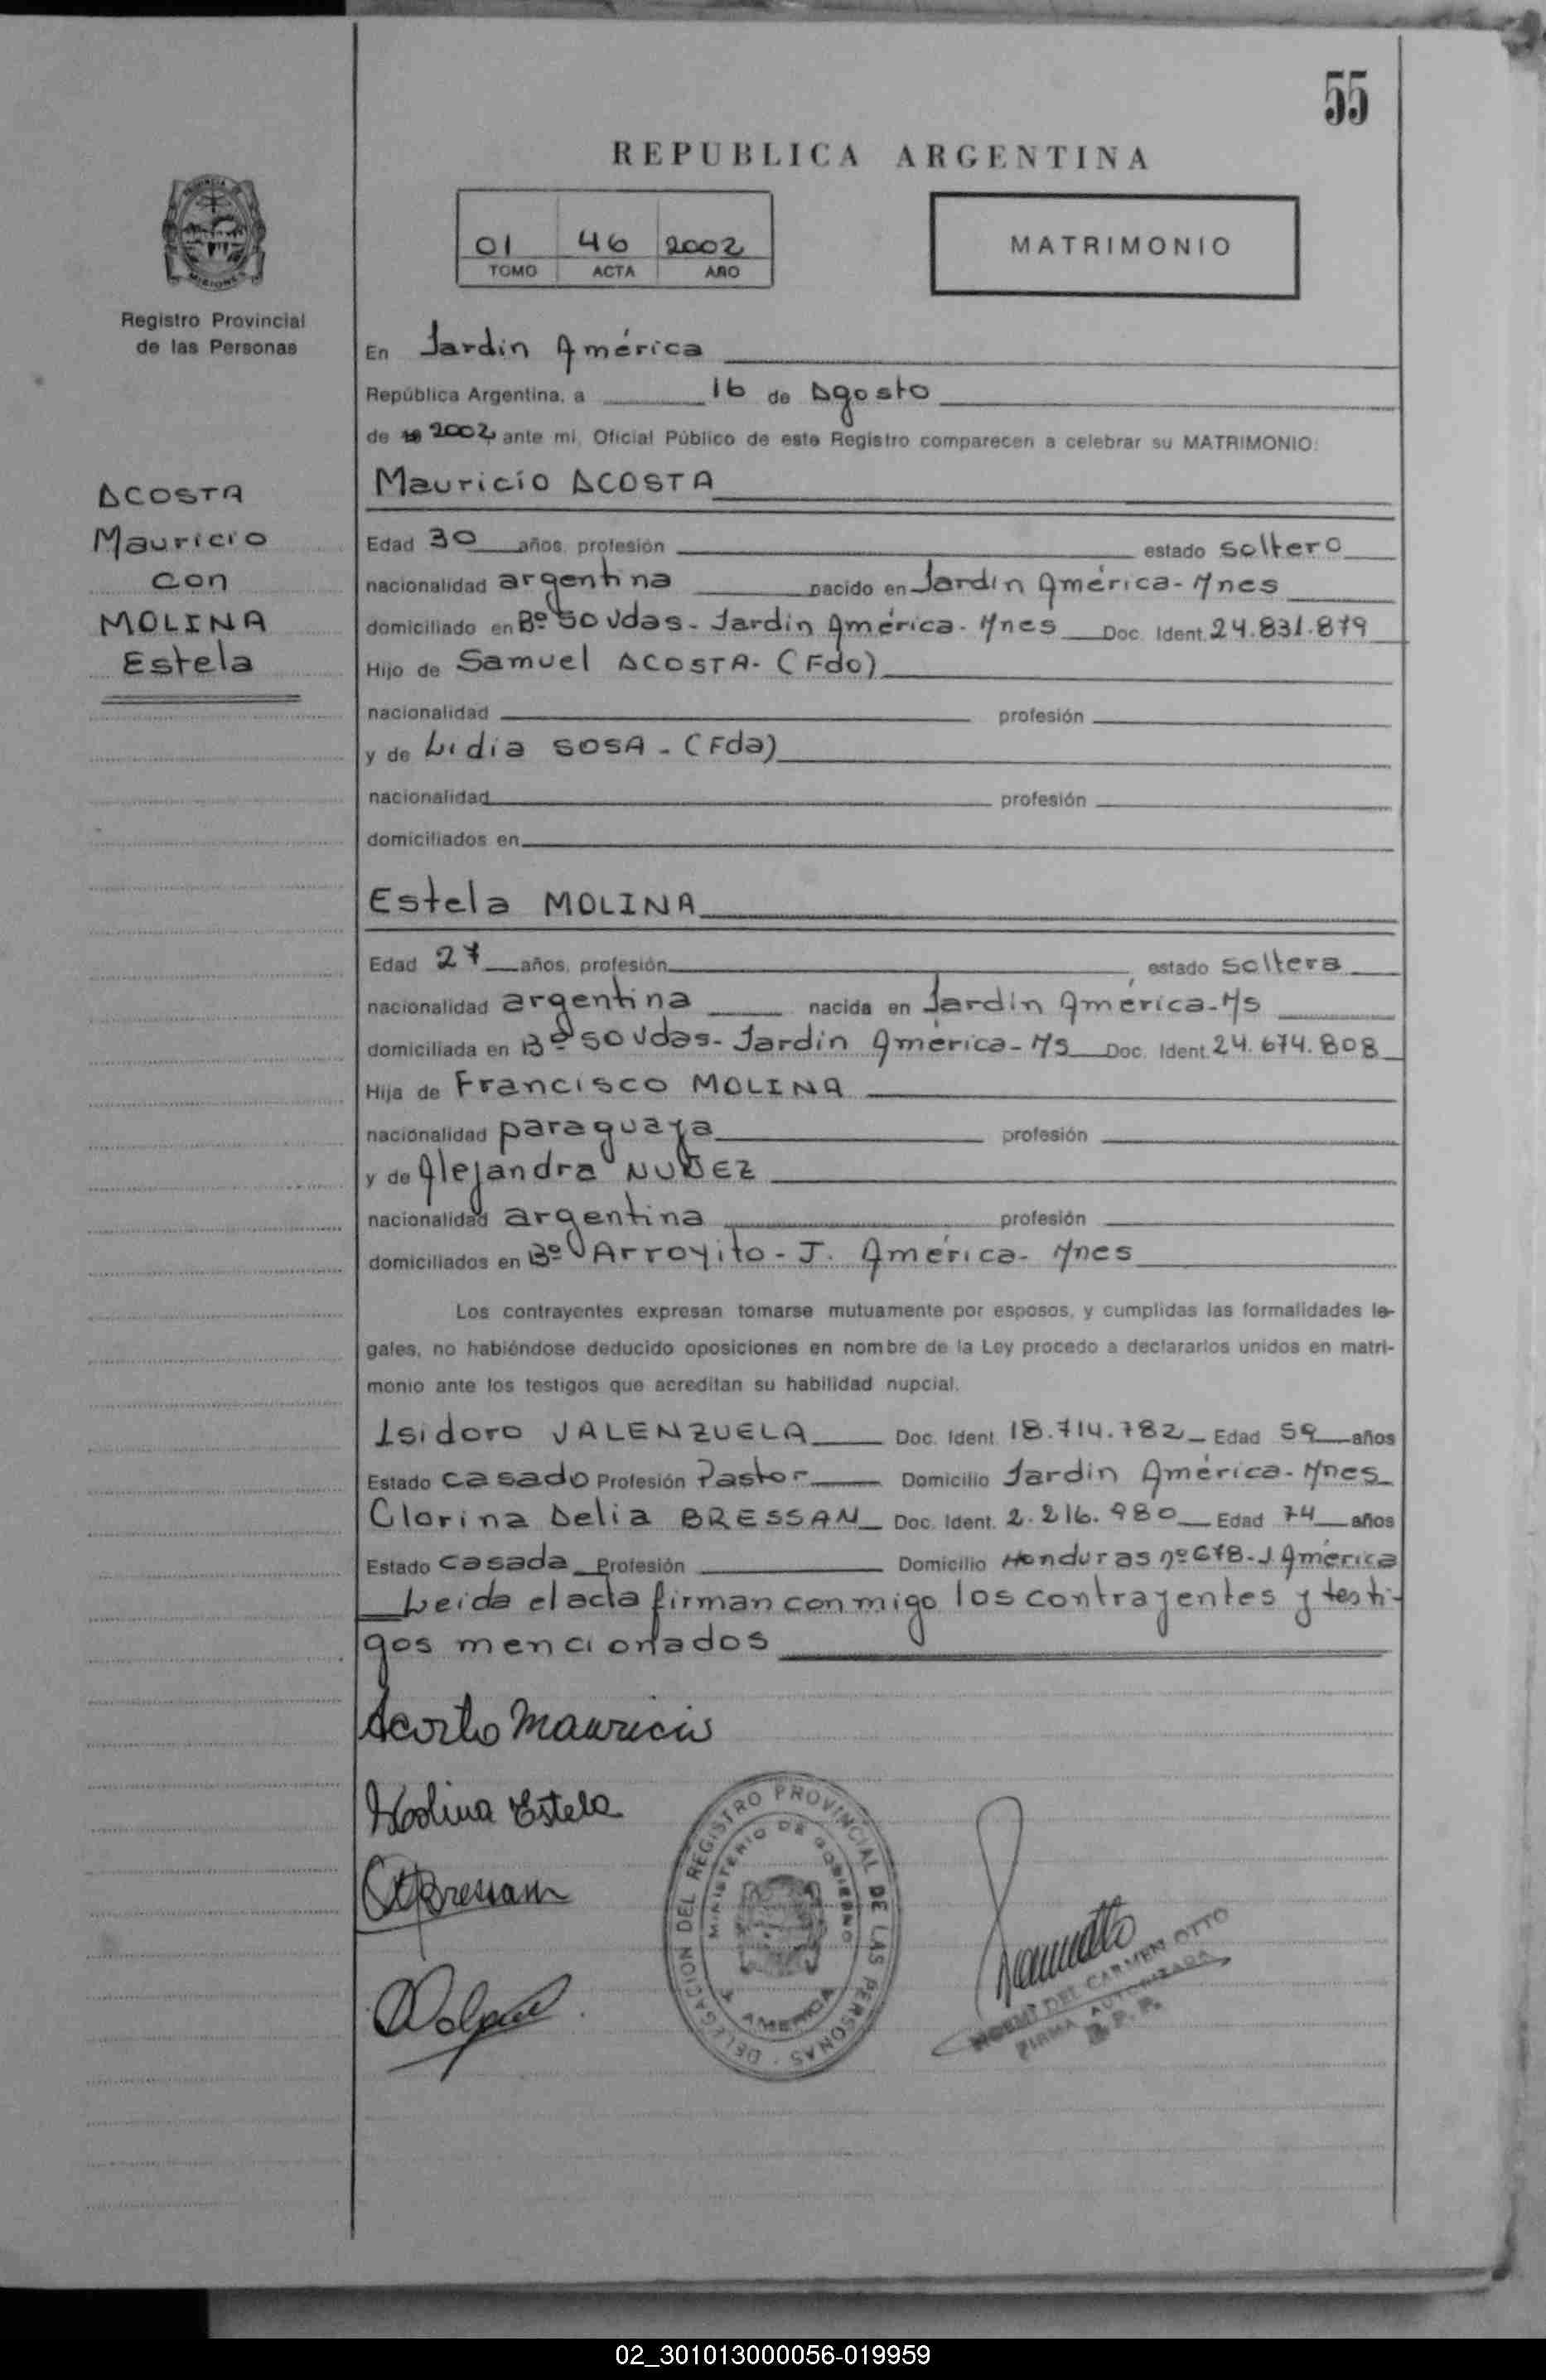 55
REPUBLICA ARGENTINA
01 46 2002
TOMO ACTA AÑO
MATRIMONIO
Registro Provincial
de las Personas
ACOSTA
Mauricio
con
MOLINA
Estela
En Jardin América
República Argentina, a 16 de Agosto
de 2002 ante mi, Oficial Público de este Registro comparecen a celebrar su MATRIMONIO:
Mauricio ACOSTA
Edad 30 años, profesión estado soltero
nacionalidad argentina nacido en Jardin América - Mnes
domiciliado en Bº 50 Vdas - Jardin América - Mnes Doc. Ident. 24.831.879
Hijo de Samuel ACOSTA - (Fdo)
nacionalidad profesión
y de Lidia SOSA - (Fda)
nacionalidad profesión
domiciliados en
Estela MOLINA
Edad 27 años, profesión estado soltera
nacionalidad argentina nacida en Jardin América - Ms
domiciliada en Bº 50 Vdas - Jardin América - Ms Doc. Ident. 24.674.808
Hija de Francisco MOLINA
nacionalidad paraguaya profesión
y de Alejandra NUÑEZ
nacionalidad argentina profesión
domiciliados en Bº Arroyito - J. América - Mnes
Los contrayentes expresan tomarse mutuamente por esposos, y cumplidas las formalidades le-
gales, no habiéndose deducido oposiciones en nombre de la Ley procedo a declararlos unidos en matri-
monio ante los testigos que acreditan su habilidad nupcial.
Isidoro VALENZUELA Doc. Ident. 18.714.782 Edad 59 años
Estado casado Profesión Pastor Domicilio Jardin América - Mnes
Clorina Delia BRESSAN Doc. Ident. 2.216.980 Edad 74 años
Estado casada Profesión Domicilio Honduras nº 678 - J. América
Leida el acta firman conmigo los contrayentes y testi-
gos mencionados
Acosta Mauricio
Molina Estela
Bressan
DELEGACION DEL REGISTRO PROVINCIAL DE LAS PERSONAS
MINISTERIO DE GOBIERNO
AMERICA
NOEMI DEL CARMEN OTTO
FIRMA AUTORIZADA
02_301013000056-019959